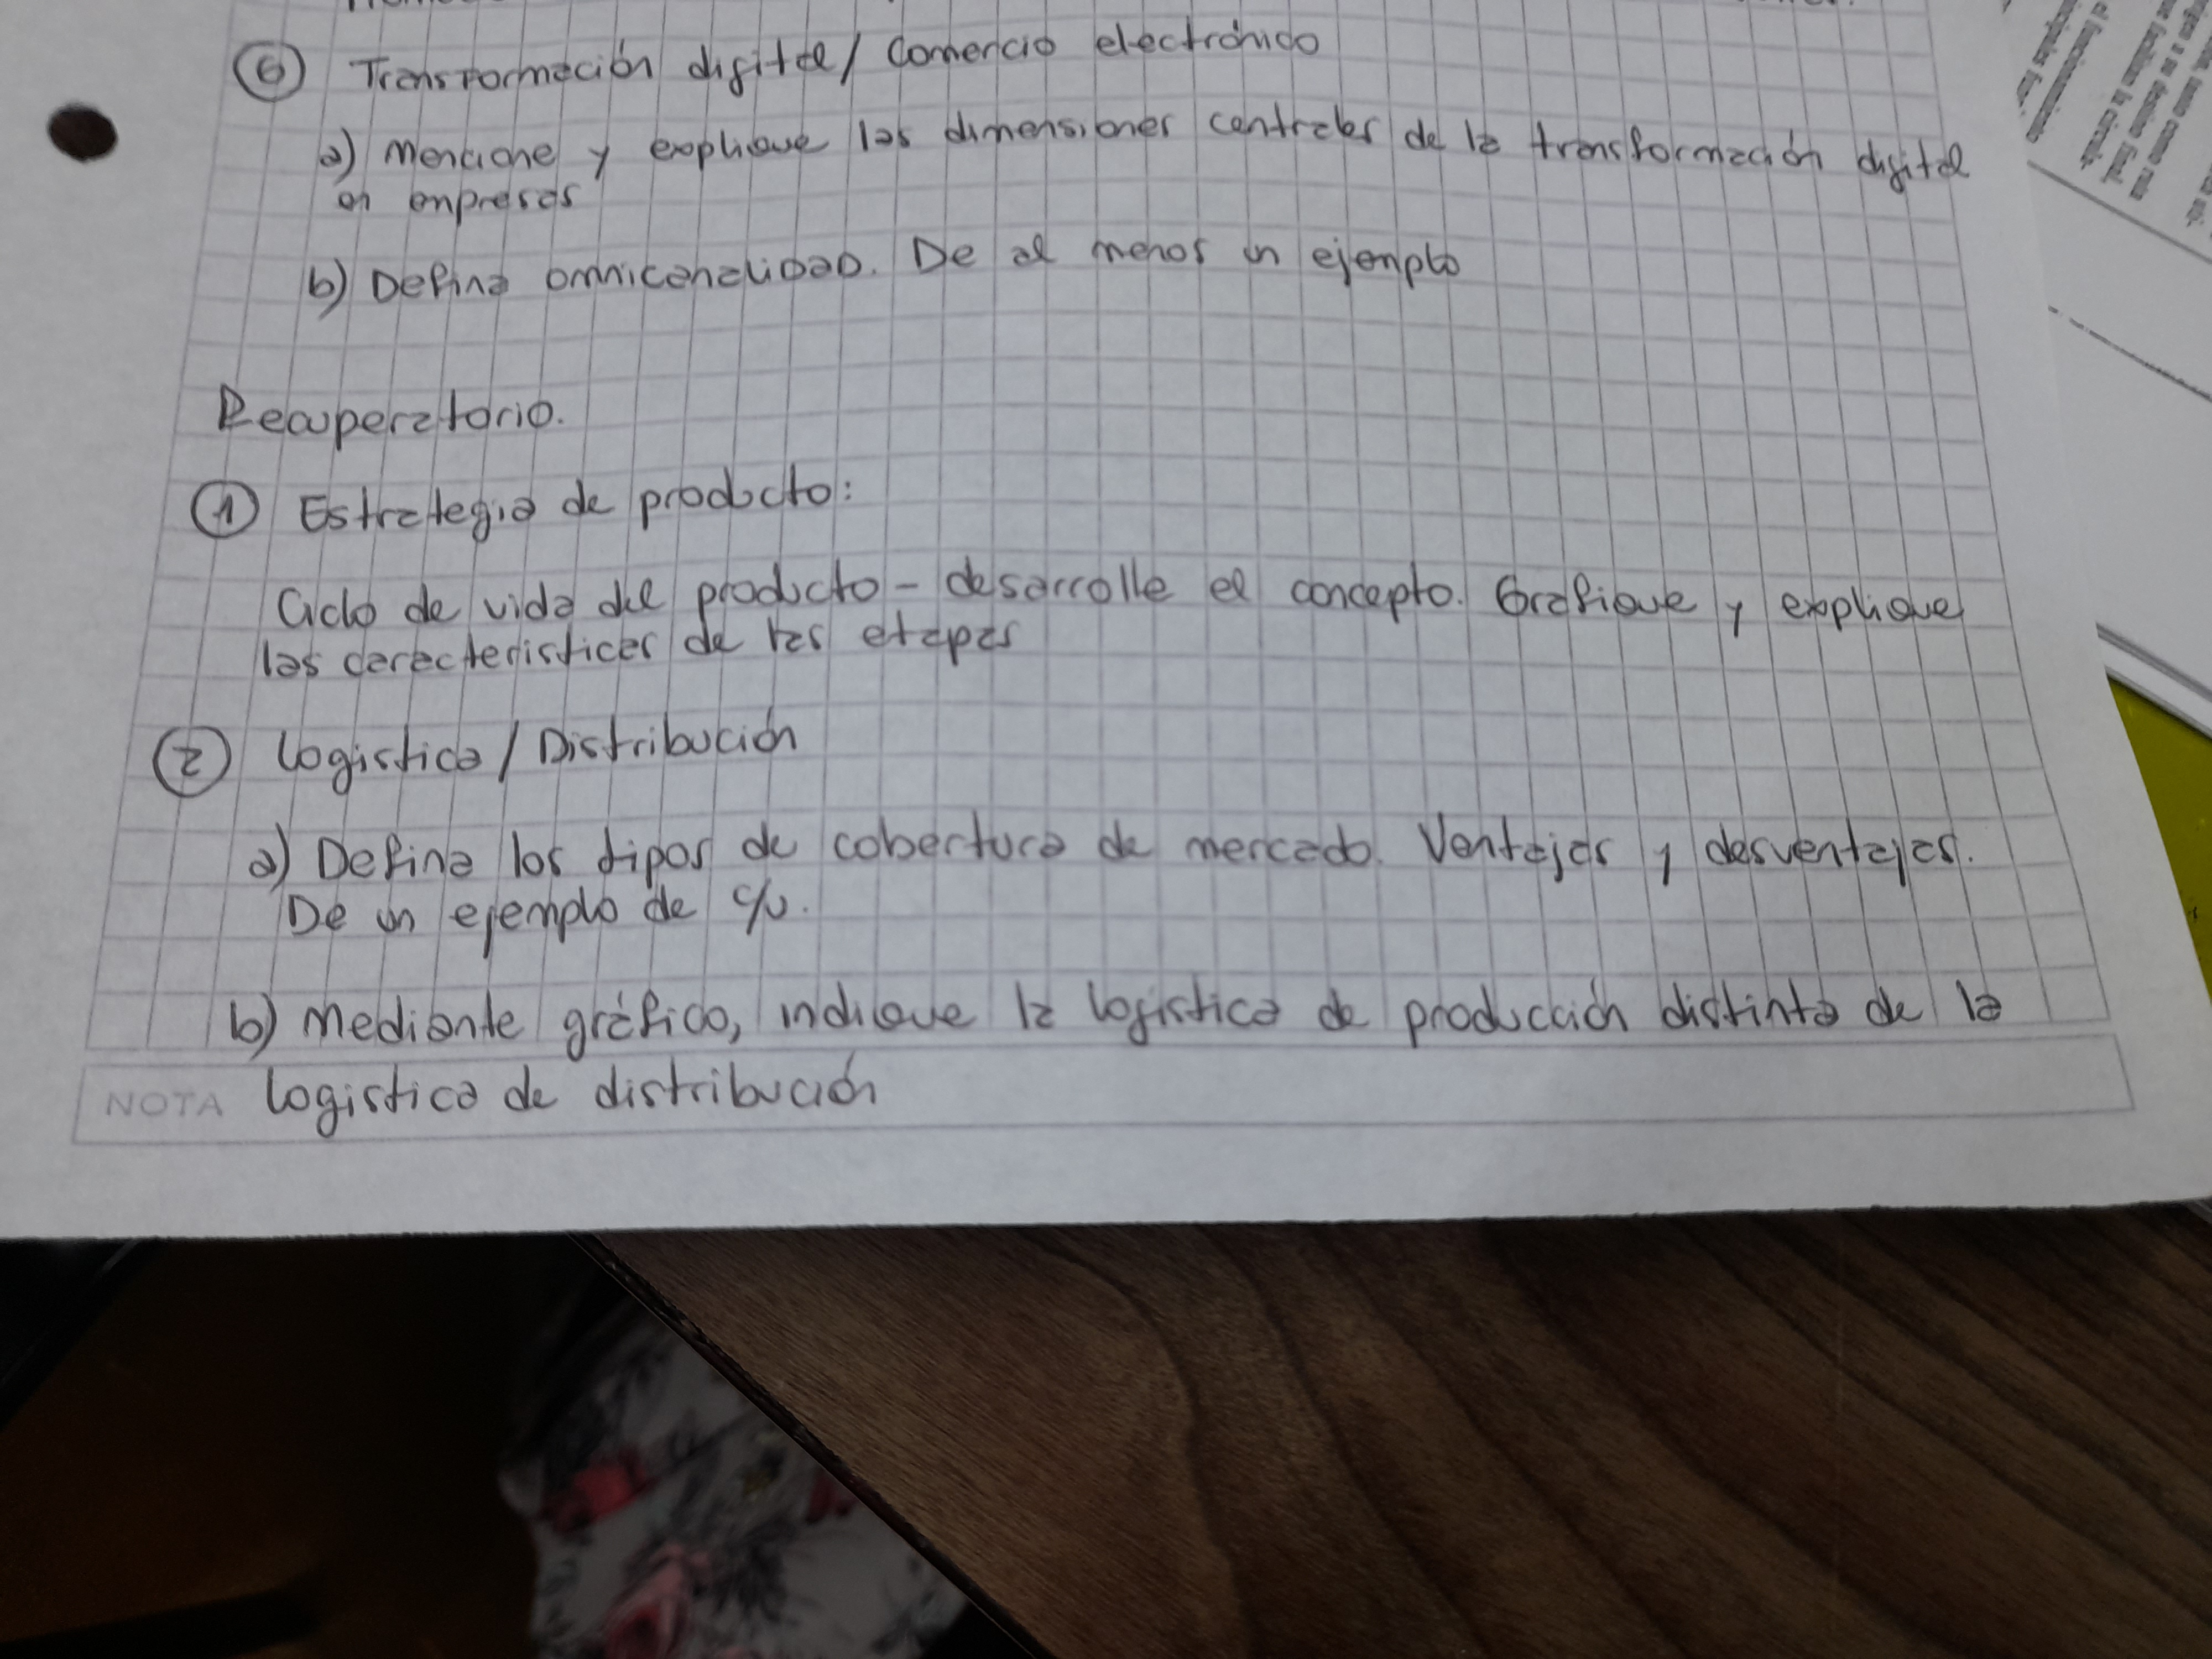 6 Transformación digital / Comercio electrónico
a) Mencione y explique las dimensiones centrales de la transformación digital
en empresas
b) Defina omnicanalidad. De al menos un ejemplo
Recuperatorio.
1 Estrategia de producto:
Ciclo de vida del producto - desarrolle el concepto. Grafique y explique
las características de las etapas
2 Logística / Distribución
a) Defina los tipos de cobertura de mercado. Ventajas y desventajas.
De un ejemplo de c/u.
b) Mediante gráfico, indique la logística de producción distinta de la
NOTA logística de distribución